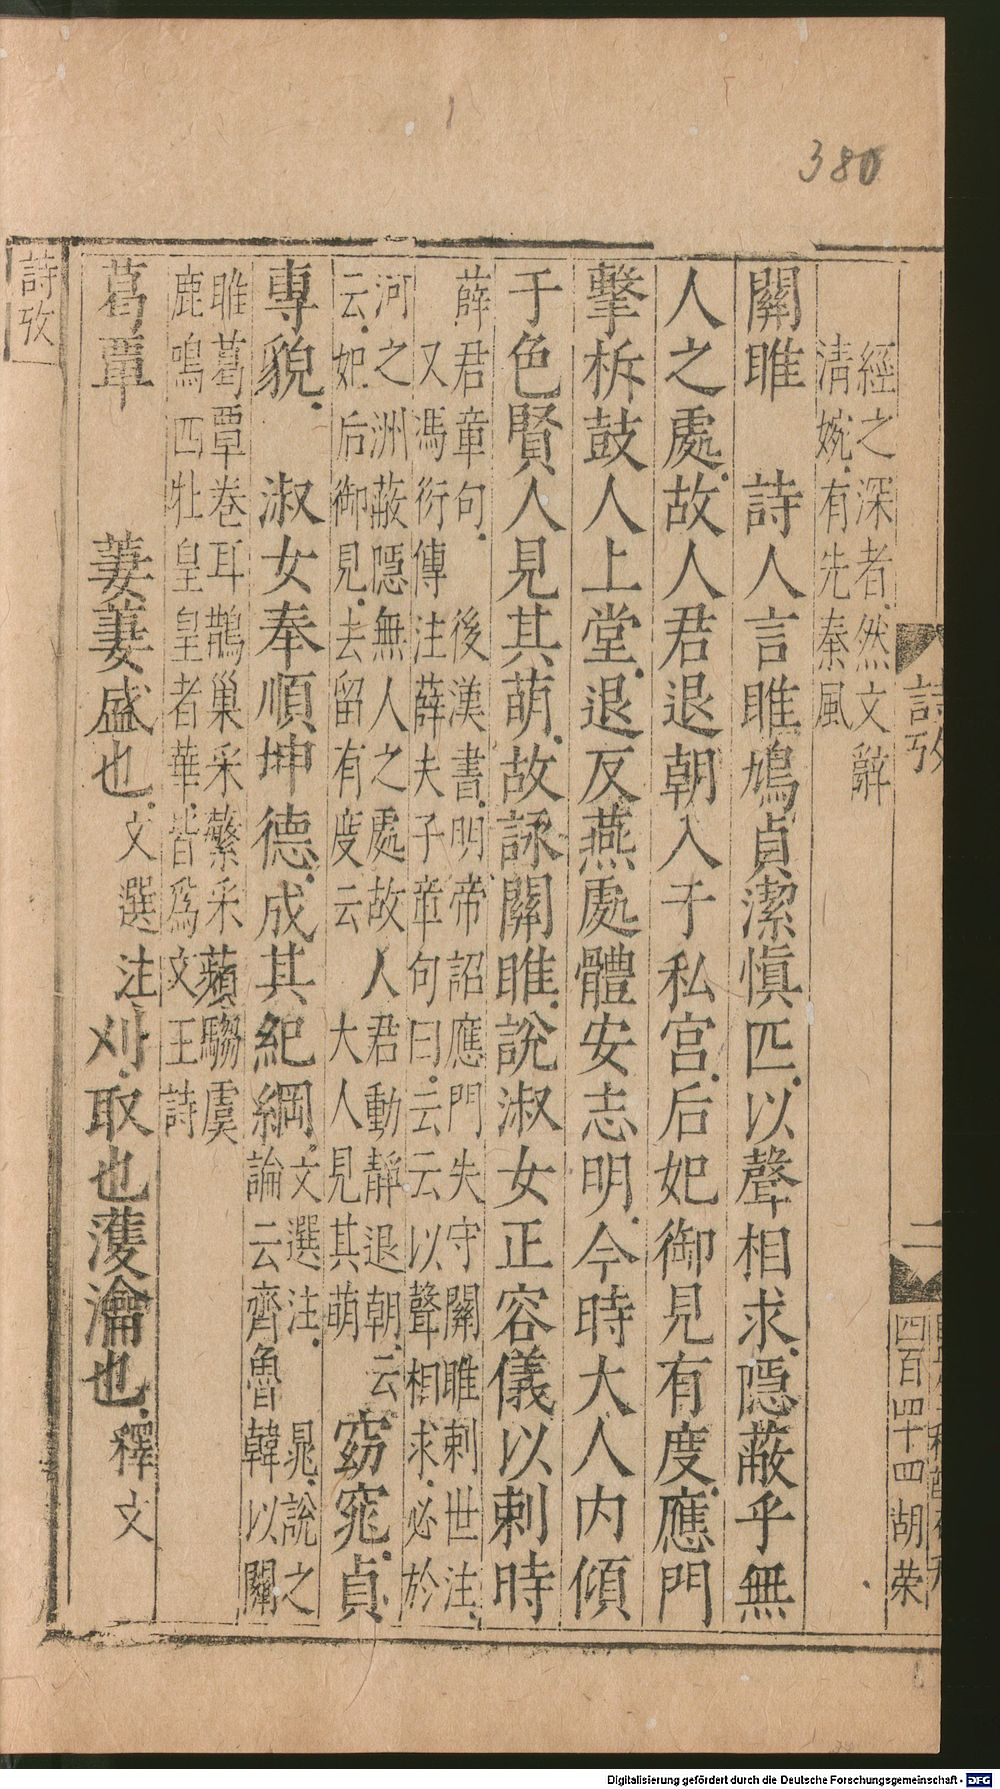 380
詩攷
二
四百四十四胡荣
經之深者然文辭
清婉有先秦風
關雎　詩人言雎鳩貞潔慎匹以聲相求隱蔽乎無
人之處故人君退朝入于私宮后妃御見有度應門
擊柝鼓人上堂退反燕處體安志明今時大人內傾
于色賢人見其萌故詠關雎說淑女正容儀以刺時
薛君章句　後漢書明帝詔應門失守關雎刺世注
又馮衍傳注薛夫子章句曰云云以聲相求必於
河之洲蔽隱無人之處故人君動靜退朝云
云妃后御見去留有度云大人見其萌
窈窕貞
專貌　淑女奉順坤德成其紀綱
文選注　晁說之
論云齊魯韓以關
雎葛覃卷耳鵲巢采蘩采蘋騶虞
鹿鳴四牡皇皇者華皆為文王詩
葛覃　萋萋盛也文選注刈取也濩瀹也釋文
詩攷一
Digitalisierung gefördert durch die Deutsche Forschungsgemeinschaft - DFG